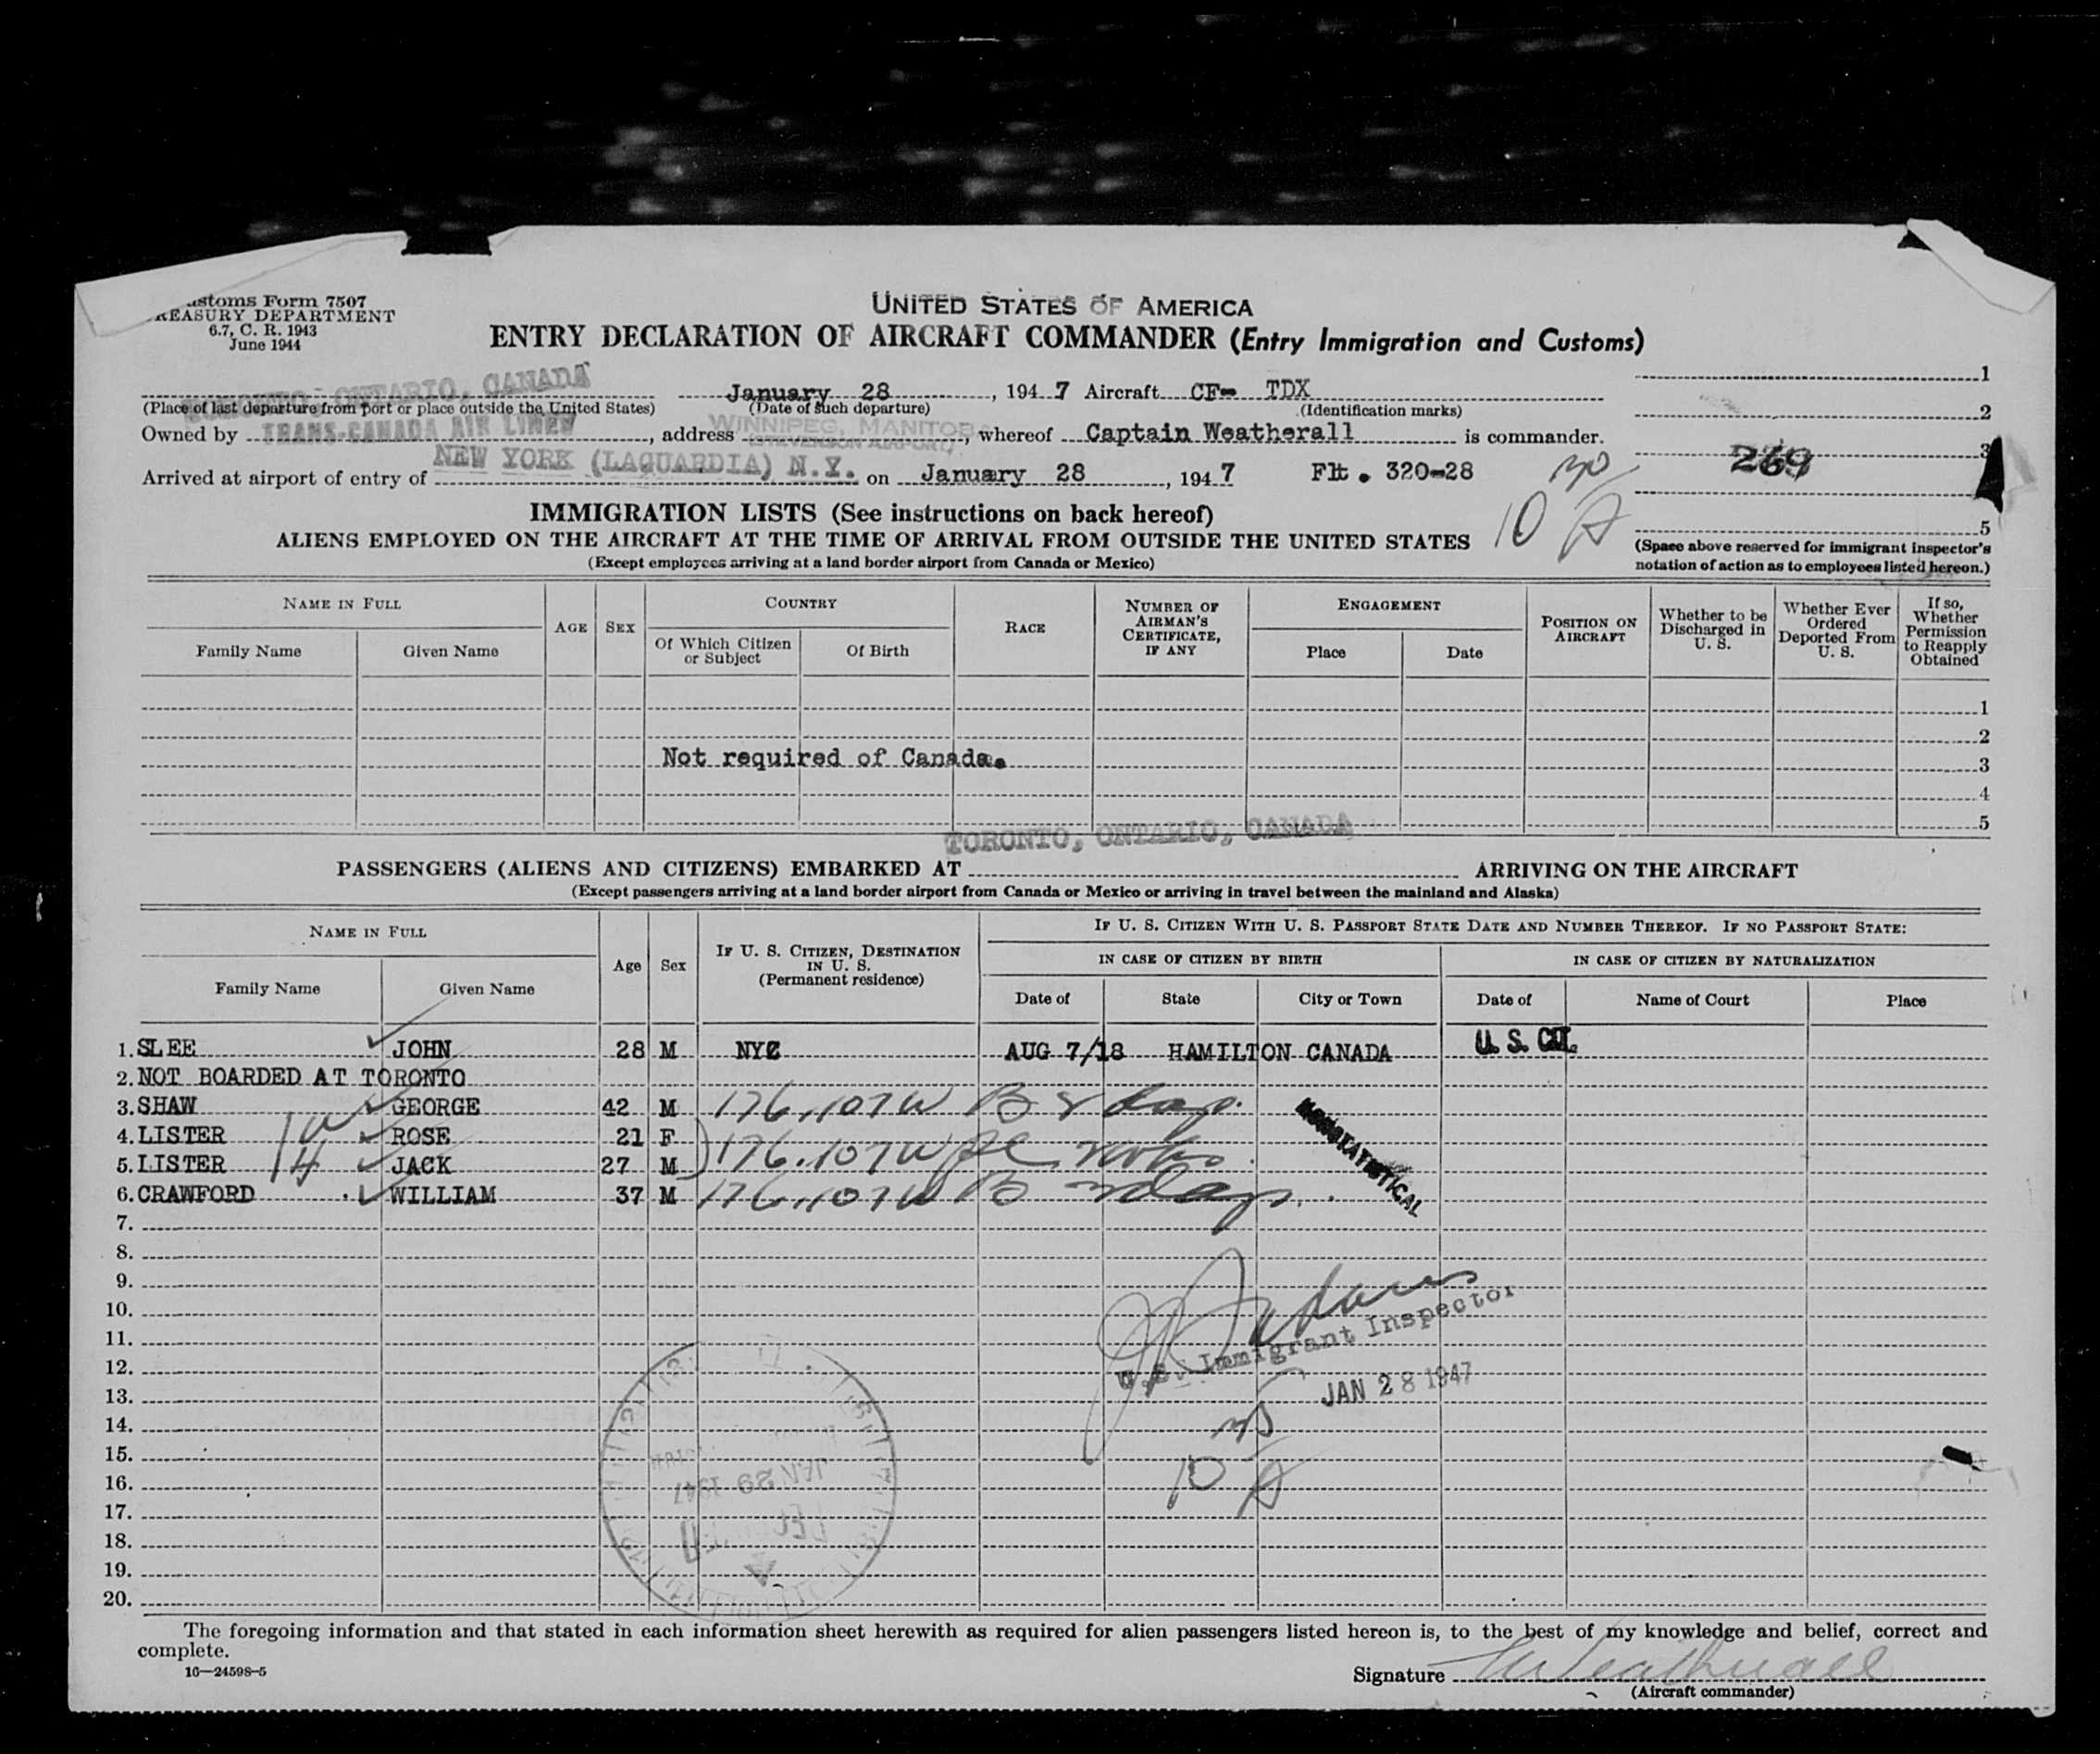 Customs Form 7507
TREASURY DEPARTMENT
6.7, C. R. 1943
June 1944
UNITED STATES OF AMERICA
ENTRY DECLARATION OF AIRCRAFT COMMANDER (Entry Immigration and Customs)
TORONTO, ONTARIO, CANADA January 28, 1947 Aircraft CF- TDX 1
(Place of last departure from port or place outside the United States) (Date of such departure) (Identification marks) 2
Owned by TRANS-CANADA AIR LINES, address WINNIPEG, MANITOBA (STEVENSON AIRPORT), whereof Captain Weatherall is commander. 3
269
Arrived at airport of entry of NEW YORK (LAGUARDIA) N.Y. on January 28, 1947 Flt. 320-28
IMMIGRATION LISTS (See instructions on back hereof)
10 5
ALIENS EMPLOYED ON THE AIRCRAFT AT THE TIME OF ARRIVAL FROM OUTSIDE THE UNITED STATES
(Space above reserved for immigrant inspector's notation of action as to employees listed hereon.)
(Except employees arriving at a land border airport from Canada or Mexico)
NAME IN FULL AGE SEX COUNTRY RACE NUMBER OF AIRMAN'S CERTIFICATE, IF ANY ENGAGEMENT POSITION ON AIRCRAFT Whether to be Discharged in U. S. Whether Ever Ordered Deported From U. S. If so, Whether Permission to Reapply Obtained
Family Name Given Name Of Which Citizen or Subject Of Birth Place Date
1
2
Not required of Canada. 3
4
5
TORONTO, ONTARIO, CANADA
PASSENGERS (ALIENS AND CITIZENS) EMBARKED AT ARRIVING ON THE AIRCRAFT
(Except passengers arriving at a land border airport from Canada or Mexico or arriving in travel between the mainland and Alaska)
NAME IN FULL Age Sex IF U. S. CITIZEN, DESTINATION IN U. S. (Permanent residence) IF U. S. CITIZEN WITH U. S. PASSPORT STATE DATE AND NUMBER THEREOF. IF NO PASSPORT STATE:
IN CASE OF CITIZEN BY BIRTH IN CASE OF CITIZEN BY NATURALIZATION
Family Name Given Name Date of State City or Town Date of Name of Court Place
1. SLEE JOHN 28 M NYC AUG 7/18 HAMILTON CANADA U. S. CIT.
2. NOT BOARDED AT TORONTO
3. SHAW GEORGE 42 M 176.107W B
4. LISTER ROSE 21 F
5. LISTER JACK 27 M 176.107W
6. CRAWFORD WILLIAM 37 M 176.107W B
NONSTATISTICAL
7.
8.
9.
10.
11.
U.S. Immigrant Inspector
12.
JAN 28 1947
13.
14.
15.
JAN 29 1947
16.
10
17.
18.
19.
20.
The foregoing information and that stated in each information sheet herewith as required for alien passengers listed hereon is, to the best of my knowledge and belief, correct and
complete.
16—24598-5
Signature Weatherall
(Aircraft commander)